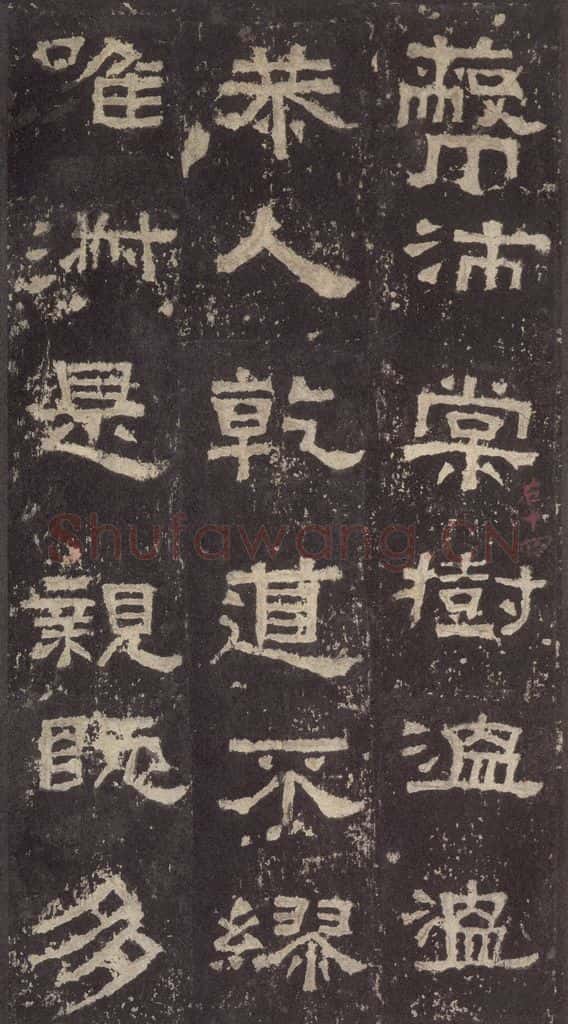 蔽沛棠樹温温
恭人乾道不繆
唯淑是親既多
Shufawang.CN